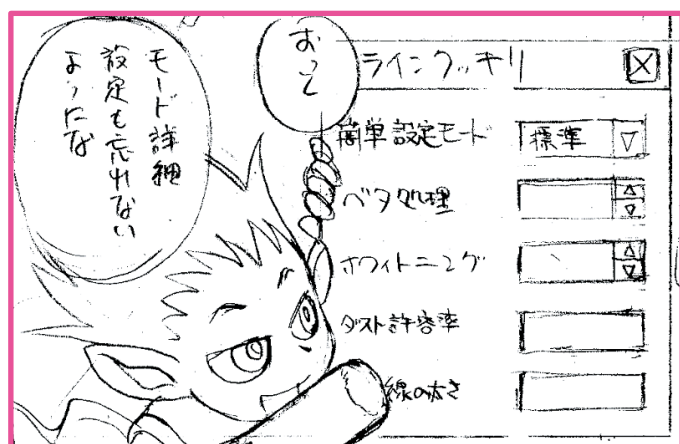 おっと
モード詳細
設定も忘れない
ようにな
ラインクッキリ
簡単設定モード
標準
ベタ処理
ホワイトニング
ダスト許容率
線の太さ